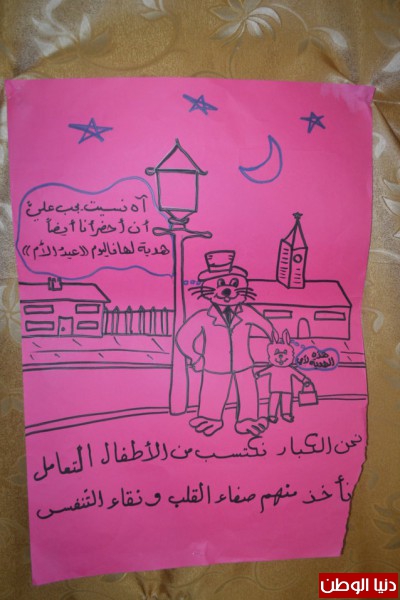 آه نسيت يجب عليّ
أن أحضر أنا أيضاً
هدية لماما ليوم «عيد الأم»
هذه
الهدية لأمي
نحن الكبار نكتسب من الأطفال التعامل
نأخذ منهم صفاء القلب ونقاء التنفس
دنيا الوطن